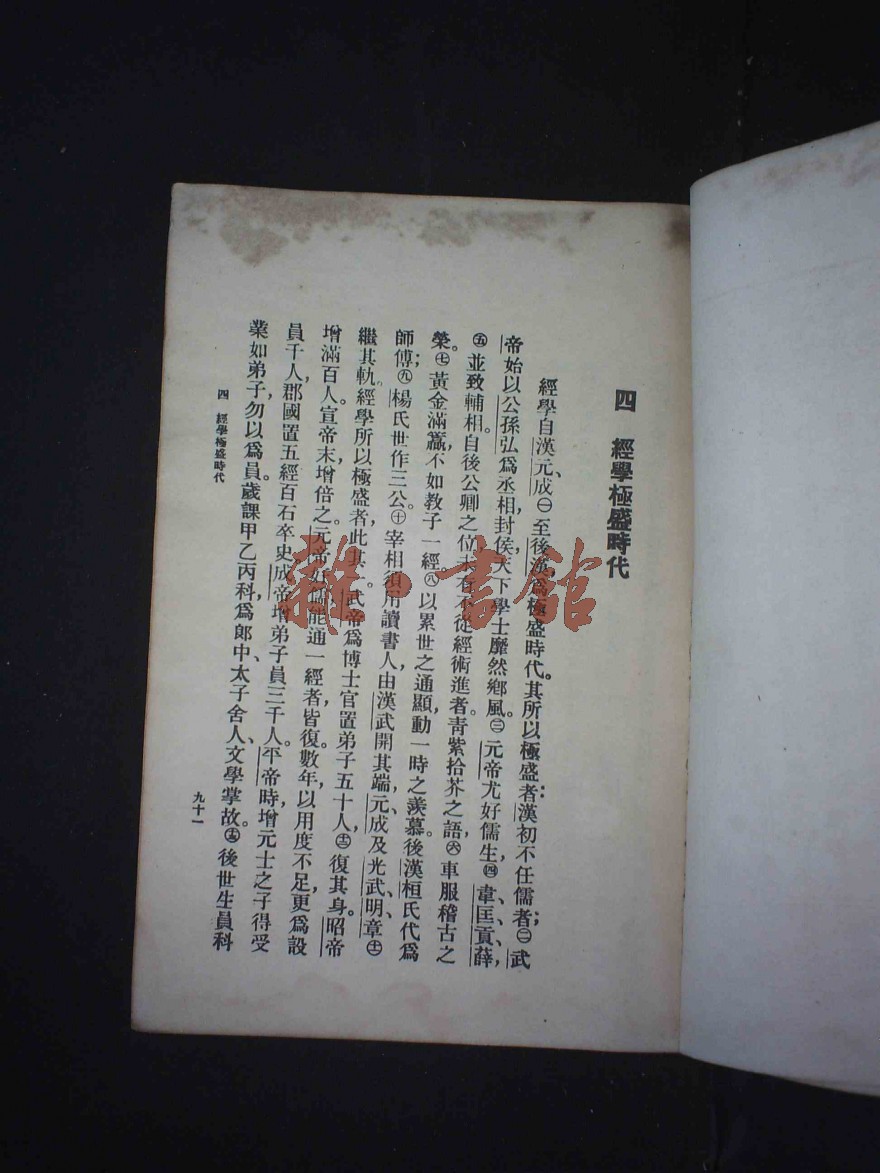 四　經學極盛時代
經學自漢元、成㊀至後漢，爲極盛時代。其所以極盛者：漢初不任儒者；㊁武
帝始以公孫弘爲丞相封侯，天下學士靡然鄉風。㊂元帝尤好儒生，㊃韋、匡、貢、薛，
㊄並致輔相。自後公卿之位，未有不從經術進者。青紫拾芥之語，㊅車服稽古之
榮。㊆黃金滿籯，不如教子一經。㊇以累世之通顯，動一時之羨慕。後漢桓氏代爲
師傅；㊈楊氏世作三公。㊉宰相須用讀書人，由漢武開其端，元、成及光武、明、章
繼其軌。經學所以極盛者，此其一。武帝爲博士官置弟子五十人，復其身。昭帝
增滿百人。宣帝末，增倍之。元帝好儒，能通一經者皆復。數年，以用度不足，更爲設
員千人，郡國置五經百石卒史。成帝增弟子員三千人。平帝時，增元士之子得受
業如弟子，勿以爲員。歲課甲乙丙科，爲郎中、太子舍人、文學掌故。後世生員科
四　經學極盛時代
九十一
雜·書館